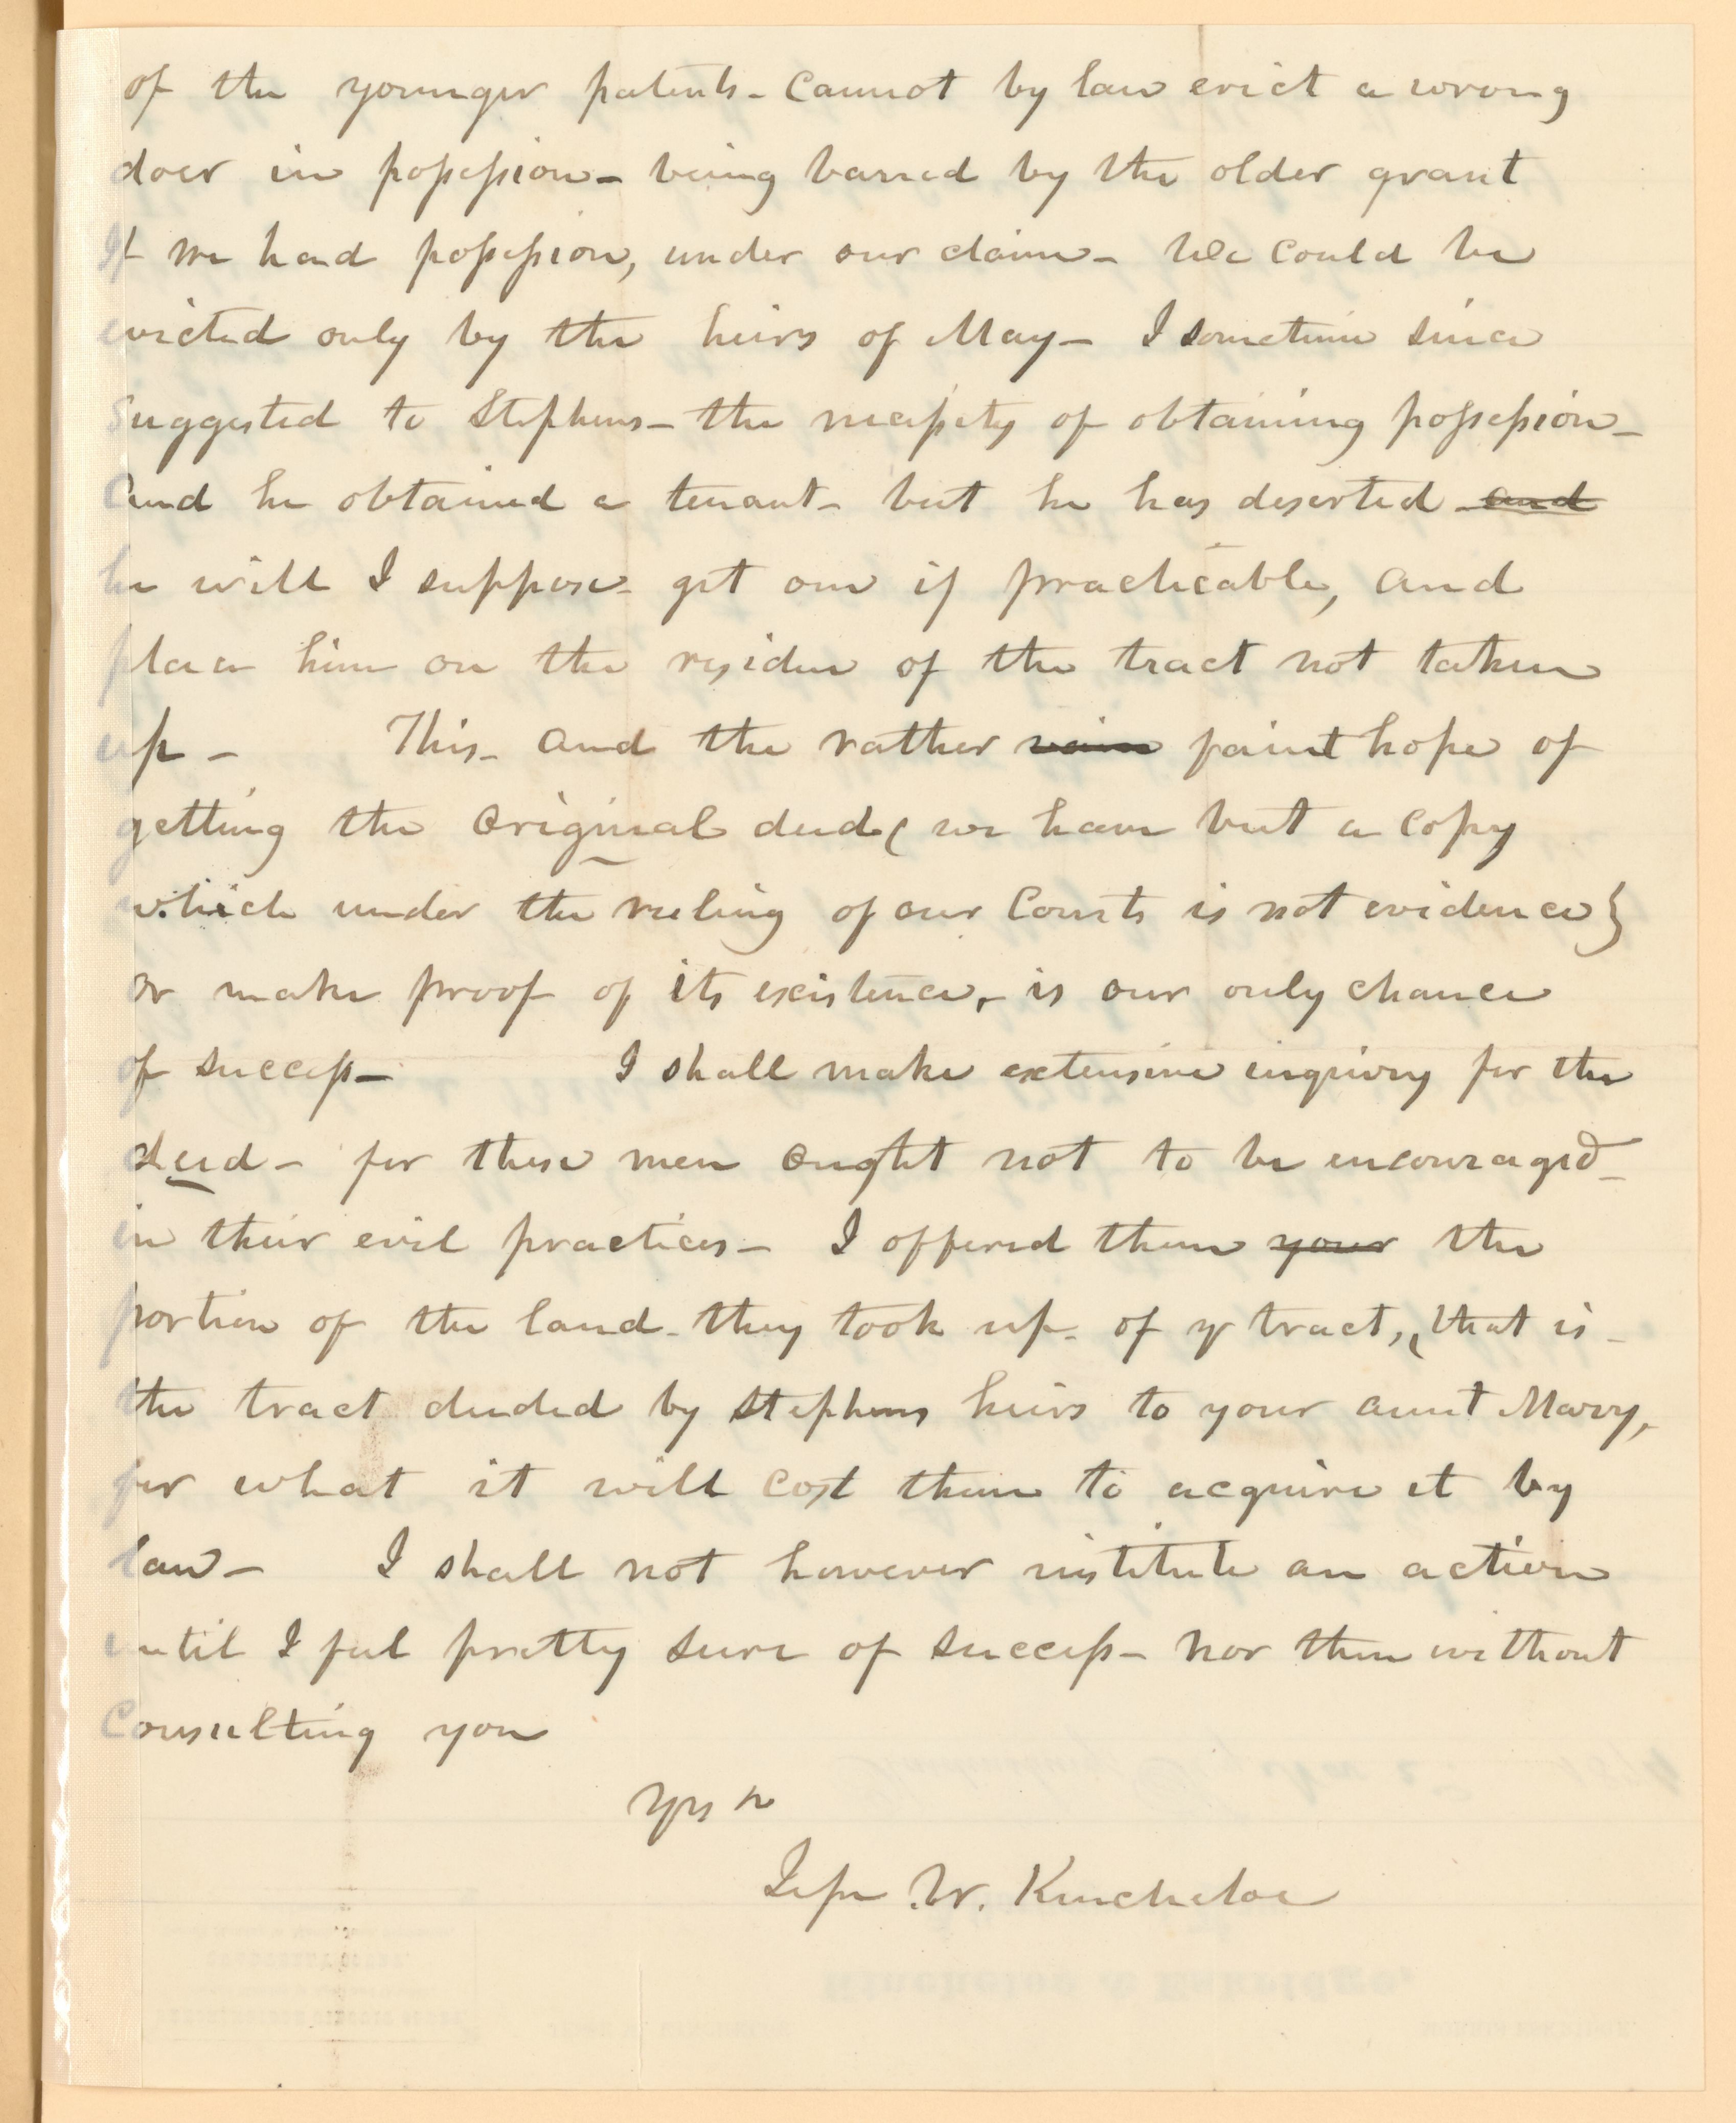 of the younger patents - cannot by law evict a wrong
doer in possession - being barred by the older grant
If we had possession, under our claim - We could be
evicted only by the heirs of May - I sometime since
suggested to Stephens - the necessity of obtaining possession -
and he obtained a tenant - but he has deserted - and
he will I suppose - get one if practicable, and
place him on the residue of the tract not taken
up - This - and the rather vain faint hope of
getting the original deed ( we have but a copy
which under the ruling of our Courts is not evidence }
or make proof of its existence, - is our only chance
of success - I shall make extensive inquiry for the
deed - for these men ought not to be encouraged -
in their evil practices - I offered them your the
portion of the land - they took up - of yr tract, ( that is -
the tract deeded by Stephens heirs to your aunt Mary,
for what it will cost them to acquire it by
law - I shall not however institute an action
until I feel pretty sure of success - nor then without
consulting you
Yrs
Jesse W. Kincheloe